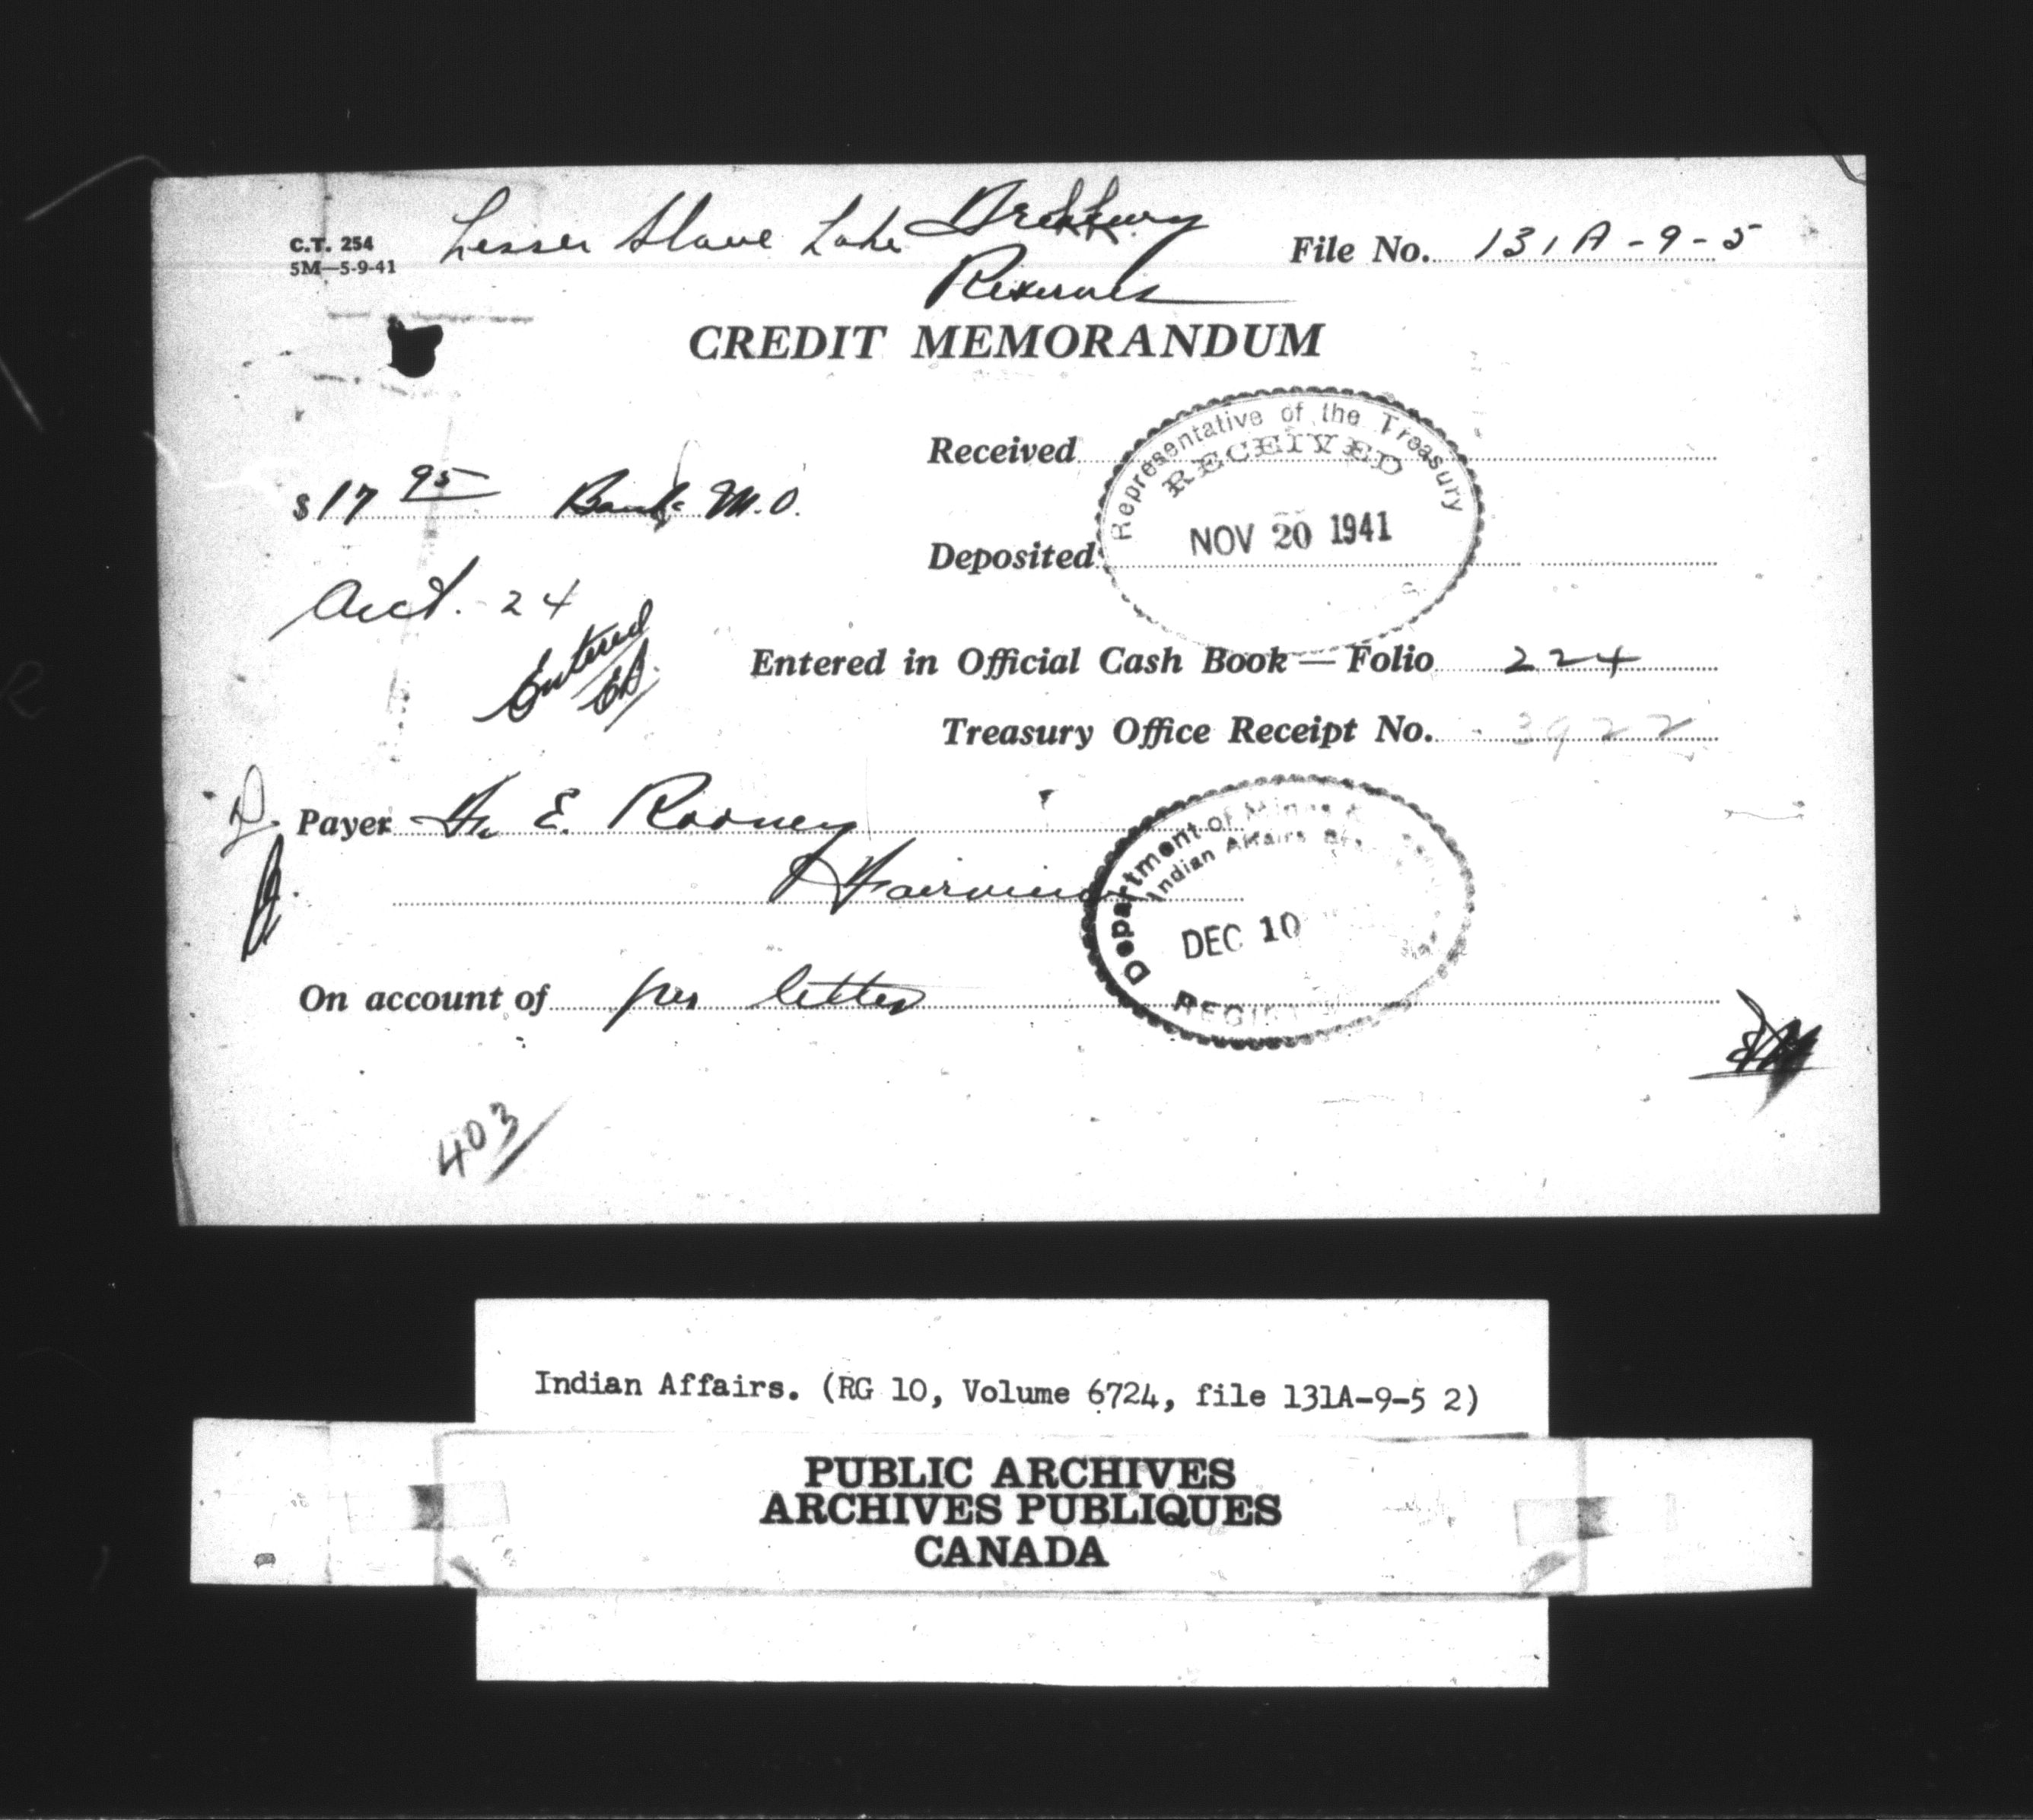 C.T. 254
5M—5-9-41
Lesser Slave Lake
Reserves
File No. 131A-9-5
CREDIT MEMORANDUM
Representative of the Treasury
RECEIVED
NOV 20 1941
Received
$17 95 Bank M.O.
Deposited
Acct. 24
Entered
Entered in Official Cash Book — Folio 224
Treasury Office Receipt No. 3922
Payer E. Rooney
Fairview
Department of Mines &
Indian Affairs
DEC 10
On account of per letter
403
Indian Affairs. (RG 10, Volume 6724, file 131A-9-5 2)
PUBLIC ARCHIVES
ARCHIVES PUBLIQUES
CANADA